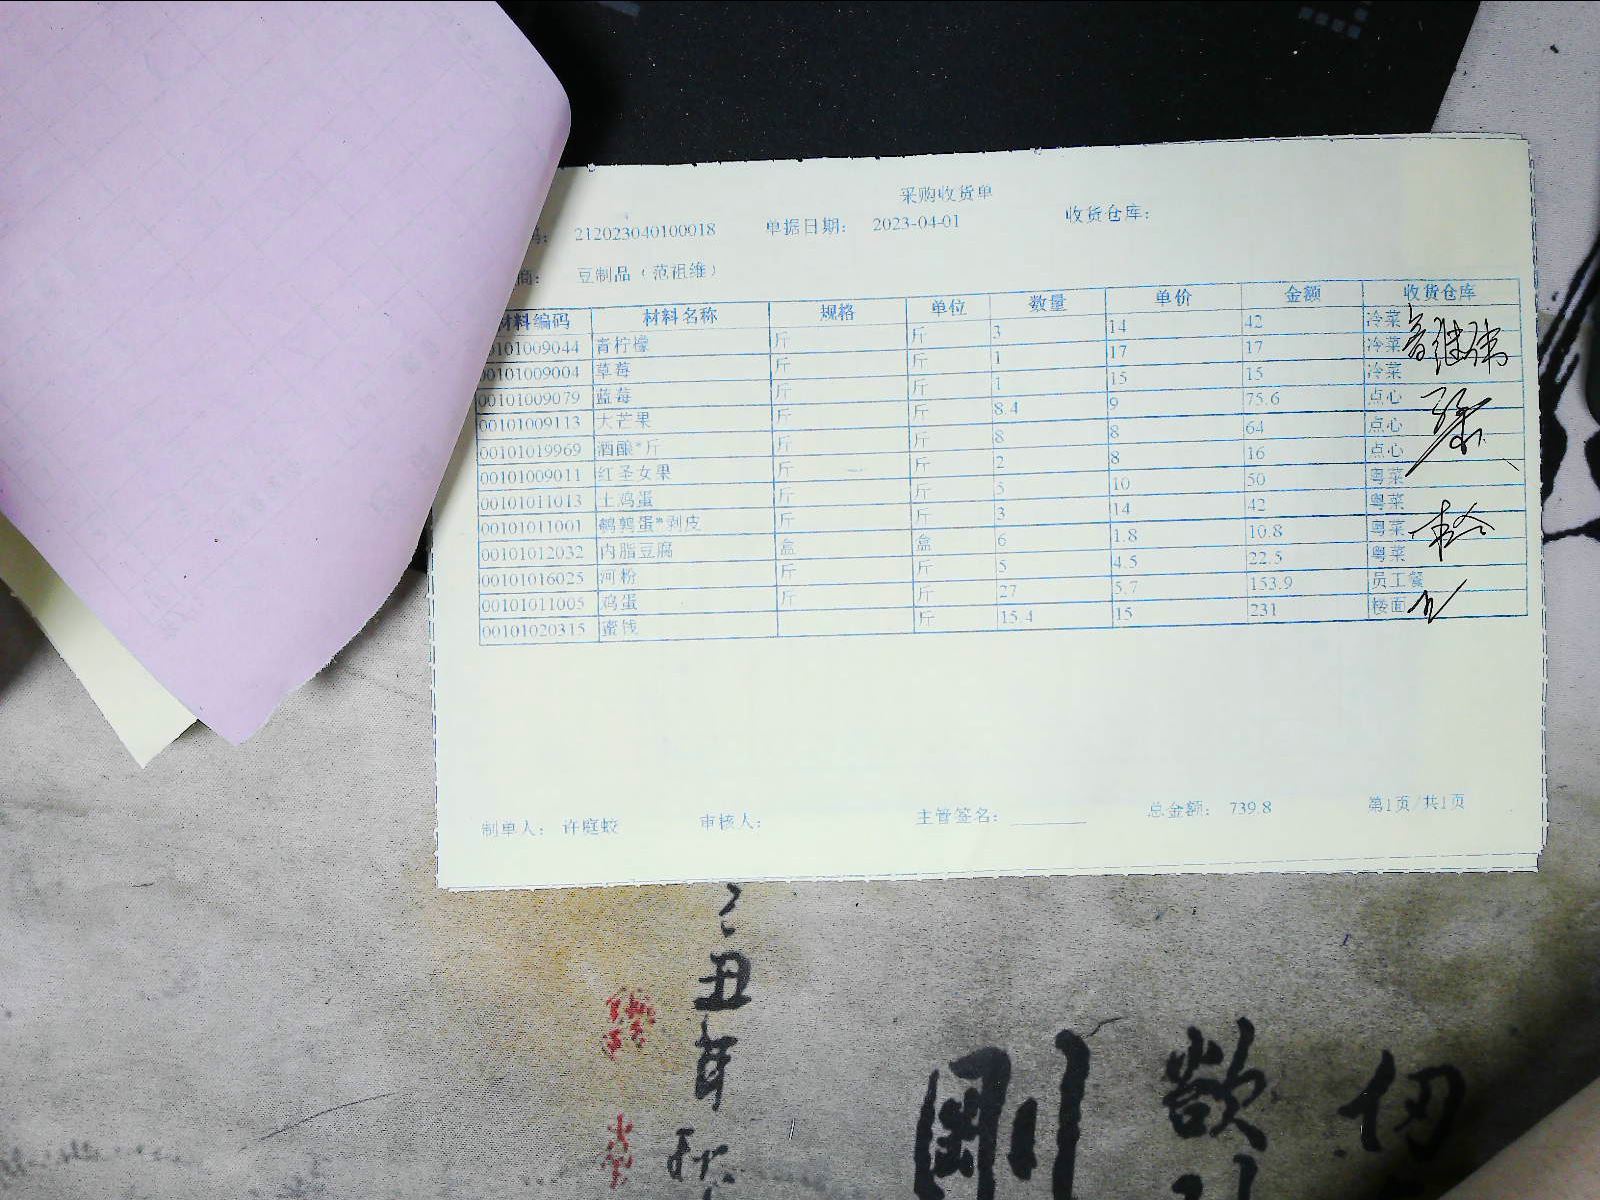 采购收货单
码： 212023040100018 单据日期： 2023-04-01 收货仓库：
商： 豆制品（范祖维）
材料编码 材料名称 规格 单位 数量 单价 金额 收货仓库
00101009044 青柠檬 斤 斤 3 14 42 冷菜
00101009004 草莓 斤 斤 1 17 17 冷菜
00101009079 蓝莓 斤 斤 1 15 15 冷菜
00101009113 大芒果 斤 斤 8.4 9 75.6 点心
00101019969 酒酿*斤 斤 斤 8 8 64 点心
00101009011 红圣女果 斤 斤 2 8 16 点心
00101011013 土鸡蛋 斤 斤 5 10 50 粤菜
00101011001 鹌鹑蛋*剥皮 斤 斤 3 14 42 粤菜
00101012032 内脂豆腐 盒 盒 6 1.8 10.8 粤菜
00101016025 河粉 斤 斤 5 4.5 22.5 粤菜
00101011005 鸡蛋 斤 斤 27 5.7 153.9 员工餐
00101020315 蜜饯 斤 15.4 15 231 楼面
制单人： 许庭蛟 审核人： 主管签名： 总金额： 739.8 第1页/共1页
丑年秋
剛
欲